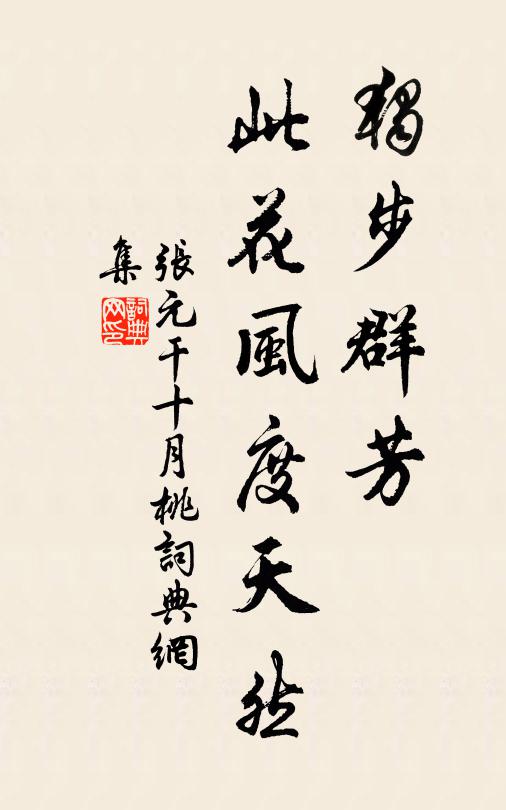 獨步群芳
此花風度天然
張元干十月桃詞典網
集
詞典網印